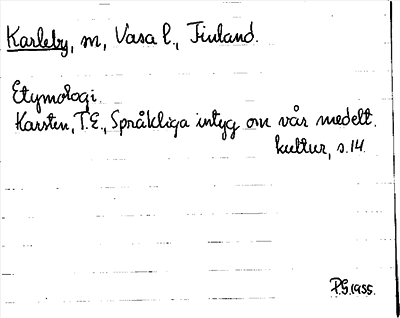 Karleby, m, Vasa l., Finland.
Etymologi.
Karsten, T.E., Språkliga intyg om vår medelt.
kultur, s. 14.
P.G. 1955.